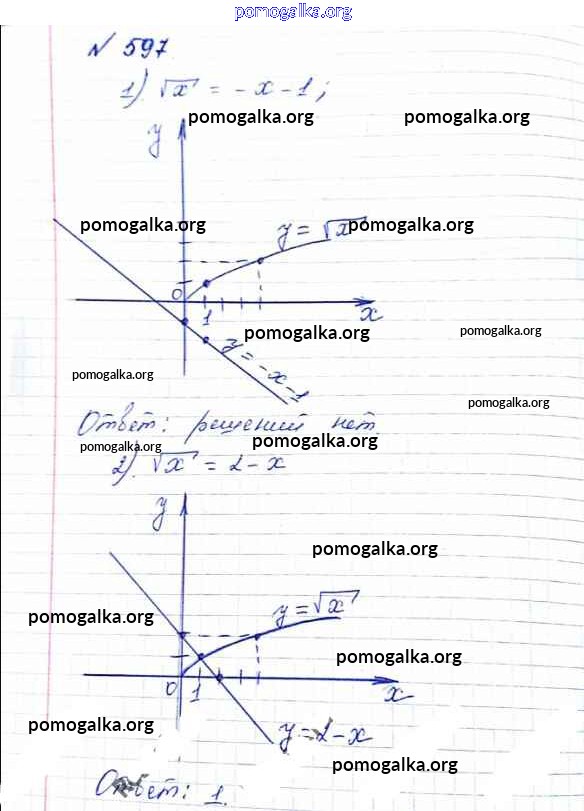 pomogalka.org
№ 597
1). √x = -x-1;
pomogalka.org pomogalka.org
y
pomogalka.org pomogalka.org
y = √x
0 1 x
pomogalka.org pomogalka.org
y = -x-1
pomogalka.org
pomogalka.org
Ответ: решений нет
pomogalka.org pomogalka.org
2). √x = 2-x
y
pomogalka.org
y = √x
pomogalka.org
pomogalka.org
0 1 x
pomogalka.org
y = 2-x
pomogalka.org
Ответ: 1.